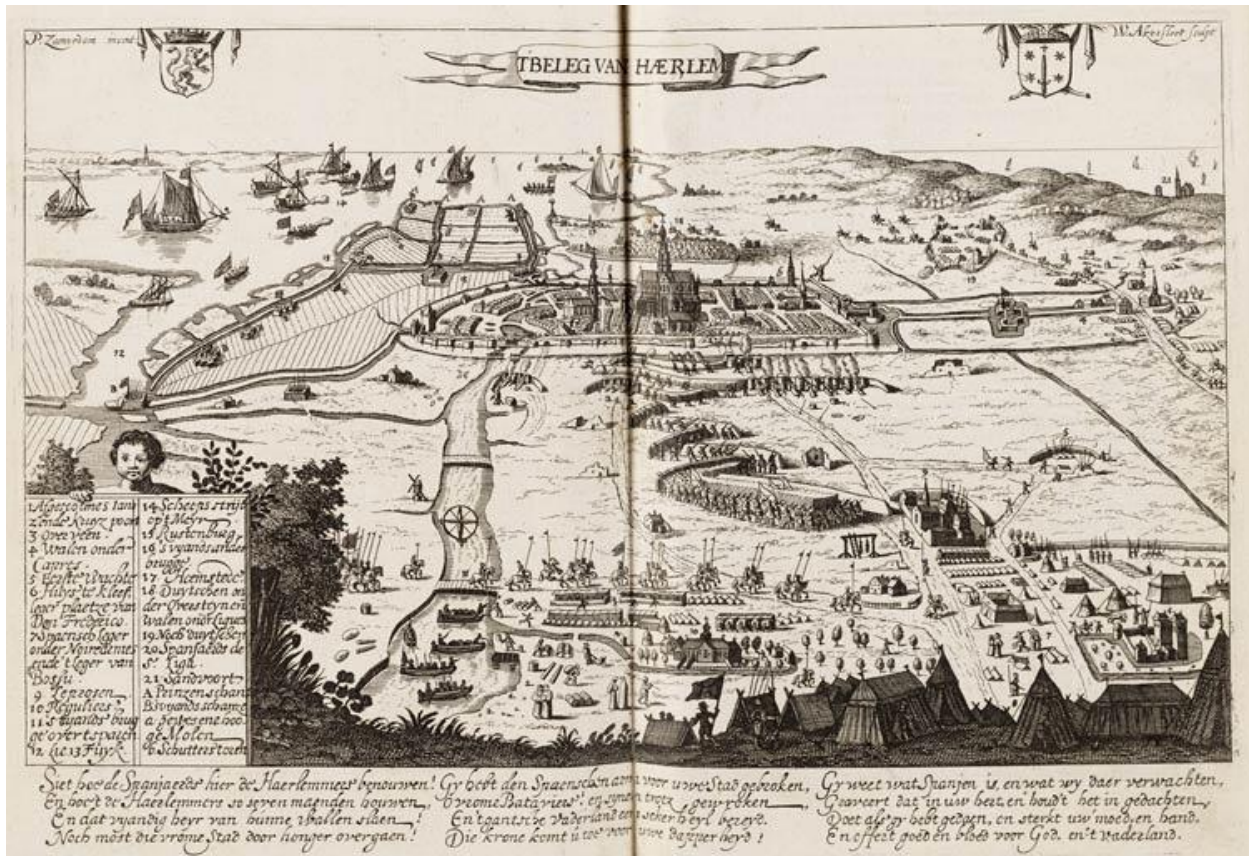 P. Zaenredam invent.
W. Akersloot sculpt
T BELEG VAN HÆRLEM
14
12
21
19
5
1
zende Kruyz poort
3 Overveen.
4 Walen onder
Capres.
5 Eerste Wachte
6 Huys te Kleef,
leger plaetze van
Don Frederico.
onder Noircarmes
ende 't leger van
Bossu.
9 Leprosen
10 Reguliers
11 's vyands brug
ge over t spaeren
12 Lie 13 Fuyk
14 Scheeps stryt
op t Meyr
15 Rustenburg
16 's vyands ander
brugge
17 Heemstede
18 Duytschen on
der Oversteyn en
Walen onder Liques
19 Noch duytschen
20 Spanjaerds de
St Tiga.
21 Sandvoort
A Prinzen schans
B vyands schans
a
ge Molen
b Schutters toren
Siet hoe de Spanjaerds hier de Haerlemmers benouwen!
En hoe't de Haerlemmers so seven maenden houwen,
En dat vyandig heyr van hunne wallen slaen!
Noch most die vrome Stad door honger overgaen!
Gy hebt den Spaenschen voor uwe Stad gebroken,
Vrome Batavieren! en synen trots gewroken,
En t gantsche vaderland een seker heyl bereyd.
Die krone komt u toe voor uwe dapperheyd!
Gy weet wat Spanjen is, en wat wy daer verwachten,
Bewaert dat in uw hert, en houd't het in gedachten,
Doet als gy hebt gedaen, en sterkt uw' moed, en hand.
En offert goed en bloed voor God, en 't vaderland.